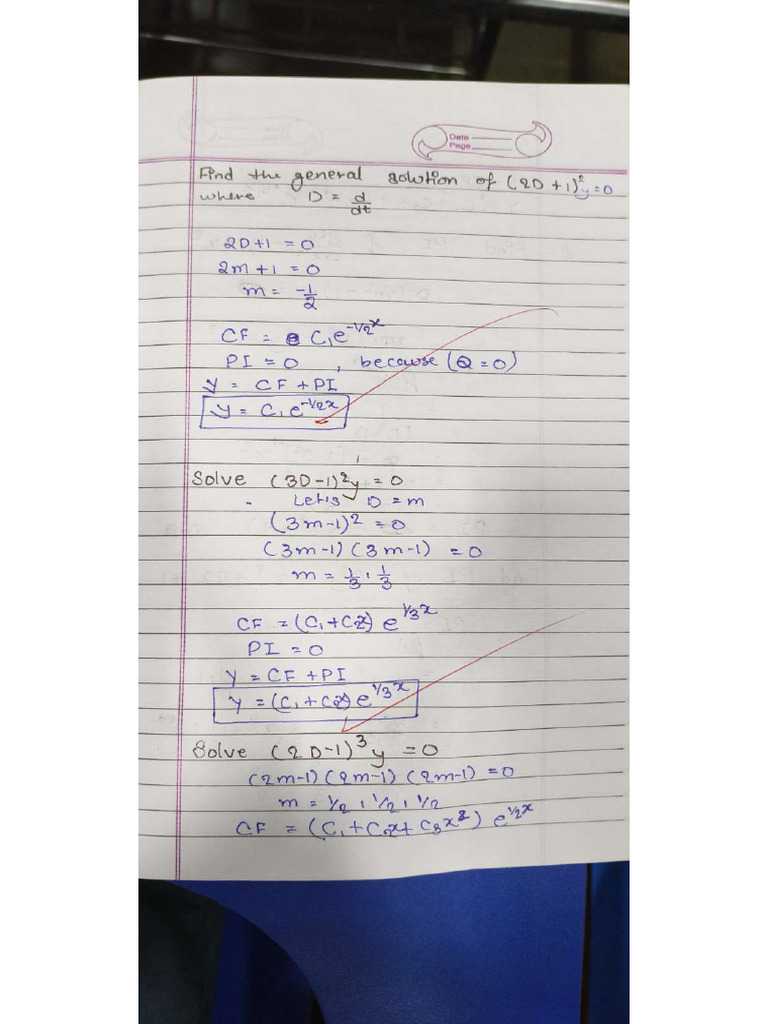 Date
Page
Find the general solution of (2D+1)²y=0
where D = d/dt
2D+1 = 0
2m+1 = 0
m = -1/2
CF = C₁e^-1/2x
PI = 0 , because (Q=0)
y = CF + PI
y = C₁e^-1/2x
Solve (3D-1)²y = 0
Let's D = m
(3m-1)² = 0
(3m-1) (3m-1) = 0
m = 1/3, 1/3
CF = (C₁+C₂x) e^1/3x
PI = 0
y = CF + PI
y = (C₁+C₂x) e^1/3x
Solve (2D-1)³y = 0
(2m-1) (2m-1) (2m-1) = 0
m = 1/2, 1/2, 1/2
CF = (C₁+C₂x+C₃x²) e^1/2x